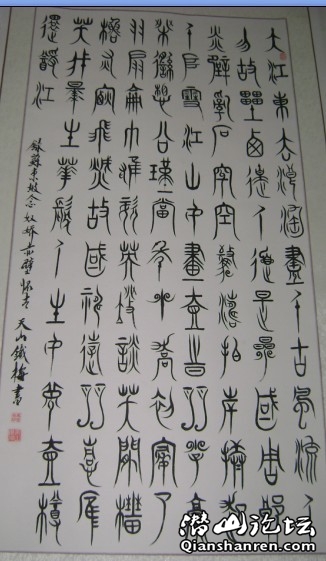 大江東去浪淘盡千古風流人
物故壘西邊人道是三國周郎
赤壁亂石穿空驚濤拍岸捲起
千堆雪江山如畫一時多少豪
傑遙想公瑾當年小喬初嫁了
羽扇綸巾雄姿英發談笑間檣
櫓灰飛煙滅故國神遊多情應
笑我早生華髮人生如夢一樽
還酹江
錄蘇東坡念奴嬌赤壁懷古 天山鐵梅書
潜山论坛
Qianshanren.com